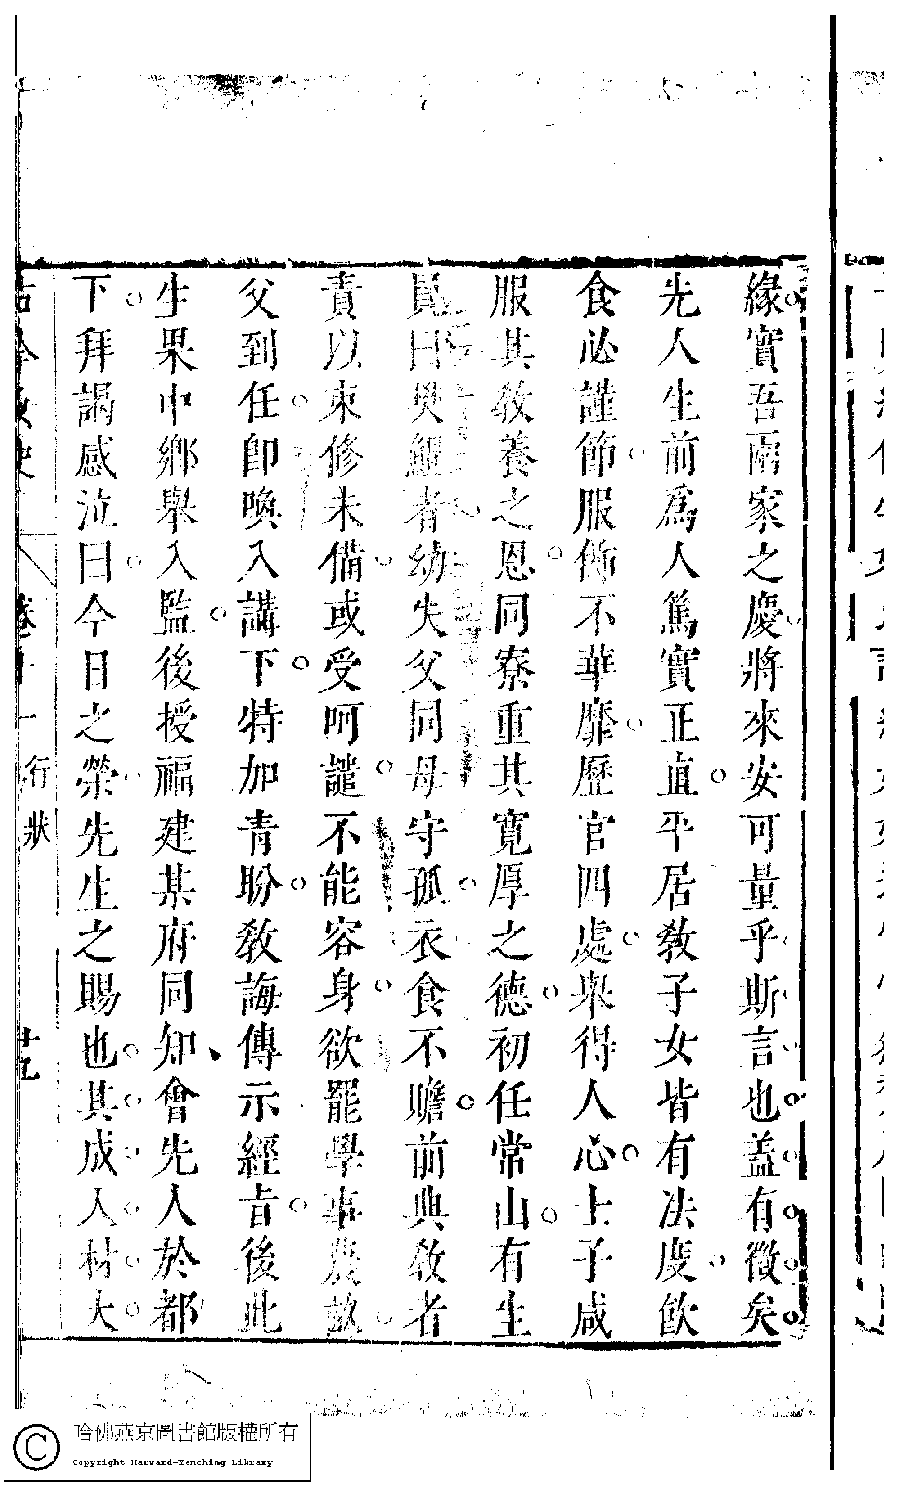 緣實吾兩家之慶將來安可量乎斯言也蓋有徵矣
先人生前爲人篤實正直平居敎子女皆有法度飮
食必謹節服飾不華靡歷官四處衆得人心士子咸
服其敎養之恩同寮重其寬厚之德初任常山有生
員曰樊鯤者幼失父同母守孤衣食不贍前典敎者
責以束修未備或受呵譴不能容身欲罷學事農故
父到任卽喚入講下特加靑盼敎誨傳示經旨後此
生果中鄉舉入監後授福建某府同知會先人於都
下拜謁感泣曰今日之榮先生之賜也其成人材大
古今女史
卷十一
行狀
廿九
哈佛燕京圖書館版權所有
Copyright Harvard-Yenching Library